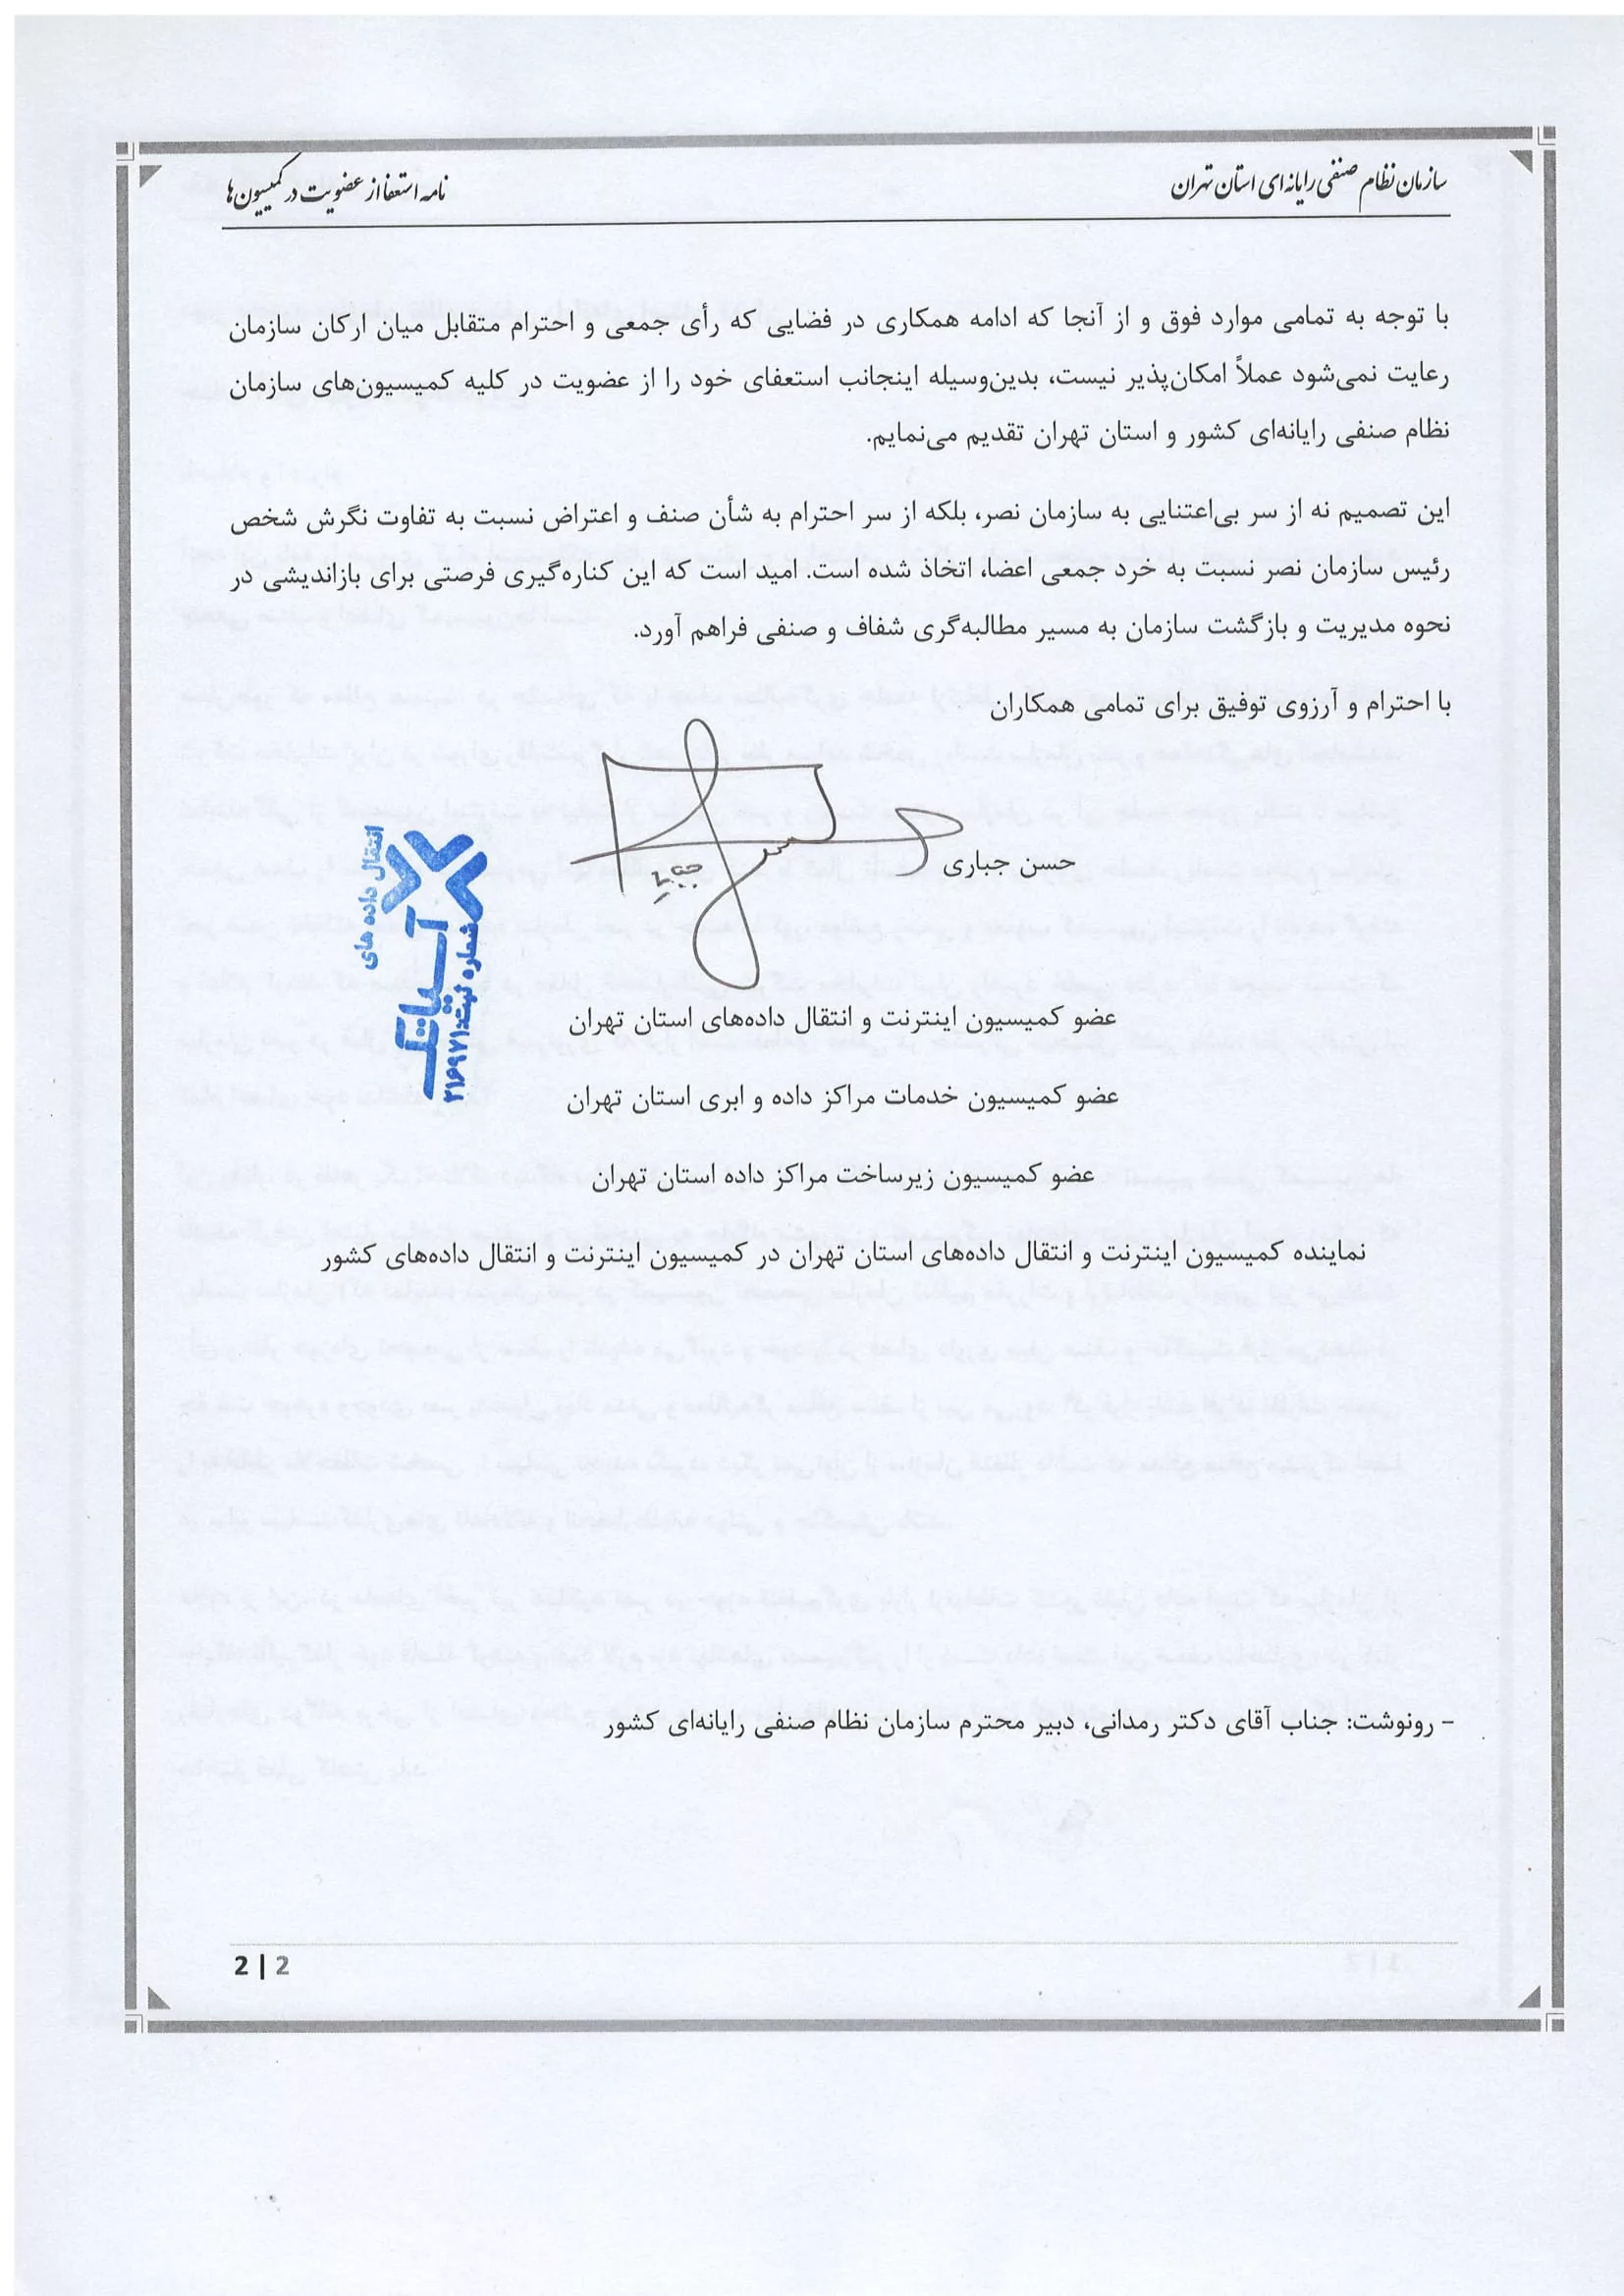 سازمان نظام صنفی رایانه‌ای استان تهران
نامه استعفا از عضویت در کمیسیون‌ها
با توجه به تمامی موارد فوق و از آنجا که ادامه همکاری در فضایی که رأی جمعی و احترام متقابل میان ارکان سازمان
رعایت نمی‌شود عملاً امکان‌پذیر نیست، بدین‌وسیله اینجانب استعفای خود را از عضویت در کلیه کمیسیون‌های سازمان
نظام صنفی رایانه‌ای کشور و استان تهران تقدیم می‌نمایم.
این تصمیم نه از سر بی‌اعتنایی به سازمان نصر، بلکه از سر احترام به شأن صنف و اعتراض نسبت به تفاوت نگرش شخص
رئیس سازمان نصر نسبت به خرد جمعی اعضا، اتخاذ شده است. امید است که این کناره‌گیری فرصتی برای بازاندیشی در
نحوه مدیریت و بازگشت سازمان به مسیر مطالبه‌گری شفاف و صنفی فراهم آورد.
با احترام و آرزوی توفیق برای تمامی همکاران
حسن جباری
انتقال داده های
آسیاتک
شماره ثبت: ۲۱۶۹۷۱
عضو کمیسیون اینترنت و انتقال داده‌های استان تهران
عضو کمیسیون خدمات مراکز داده و ابری استان تهران
عضو کمیسیون زیرساخت مراکز داده استان تهران
نماینده کمیسیون اینترنت و انتقال داده‌های استان تهران در کمیسیون اینترنت و انتقال داده‌های کشور
- رونوشت: جناب آقای دکتر رمدانی، دبیر محترم سازمان نظام صنفی رایانه‌ای کشور
2 | 2